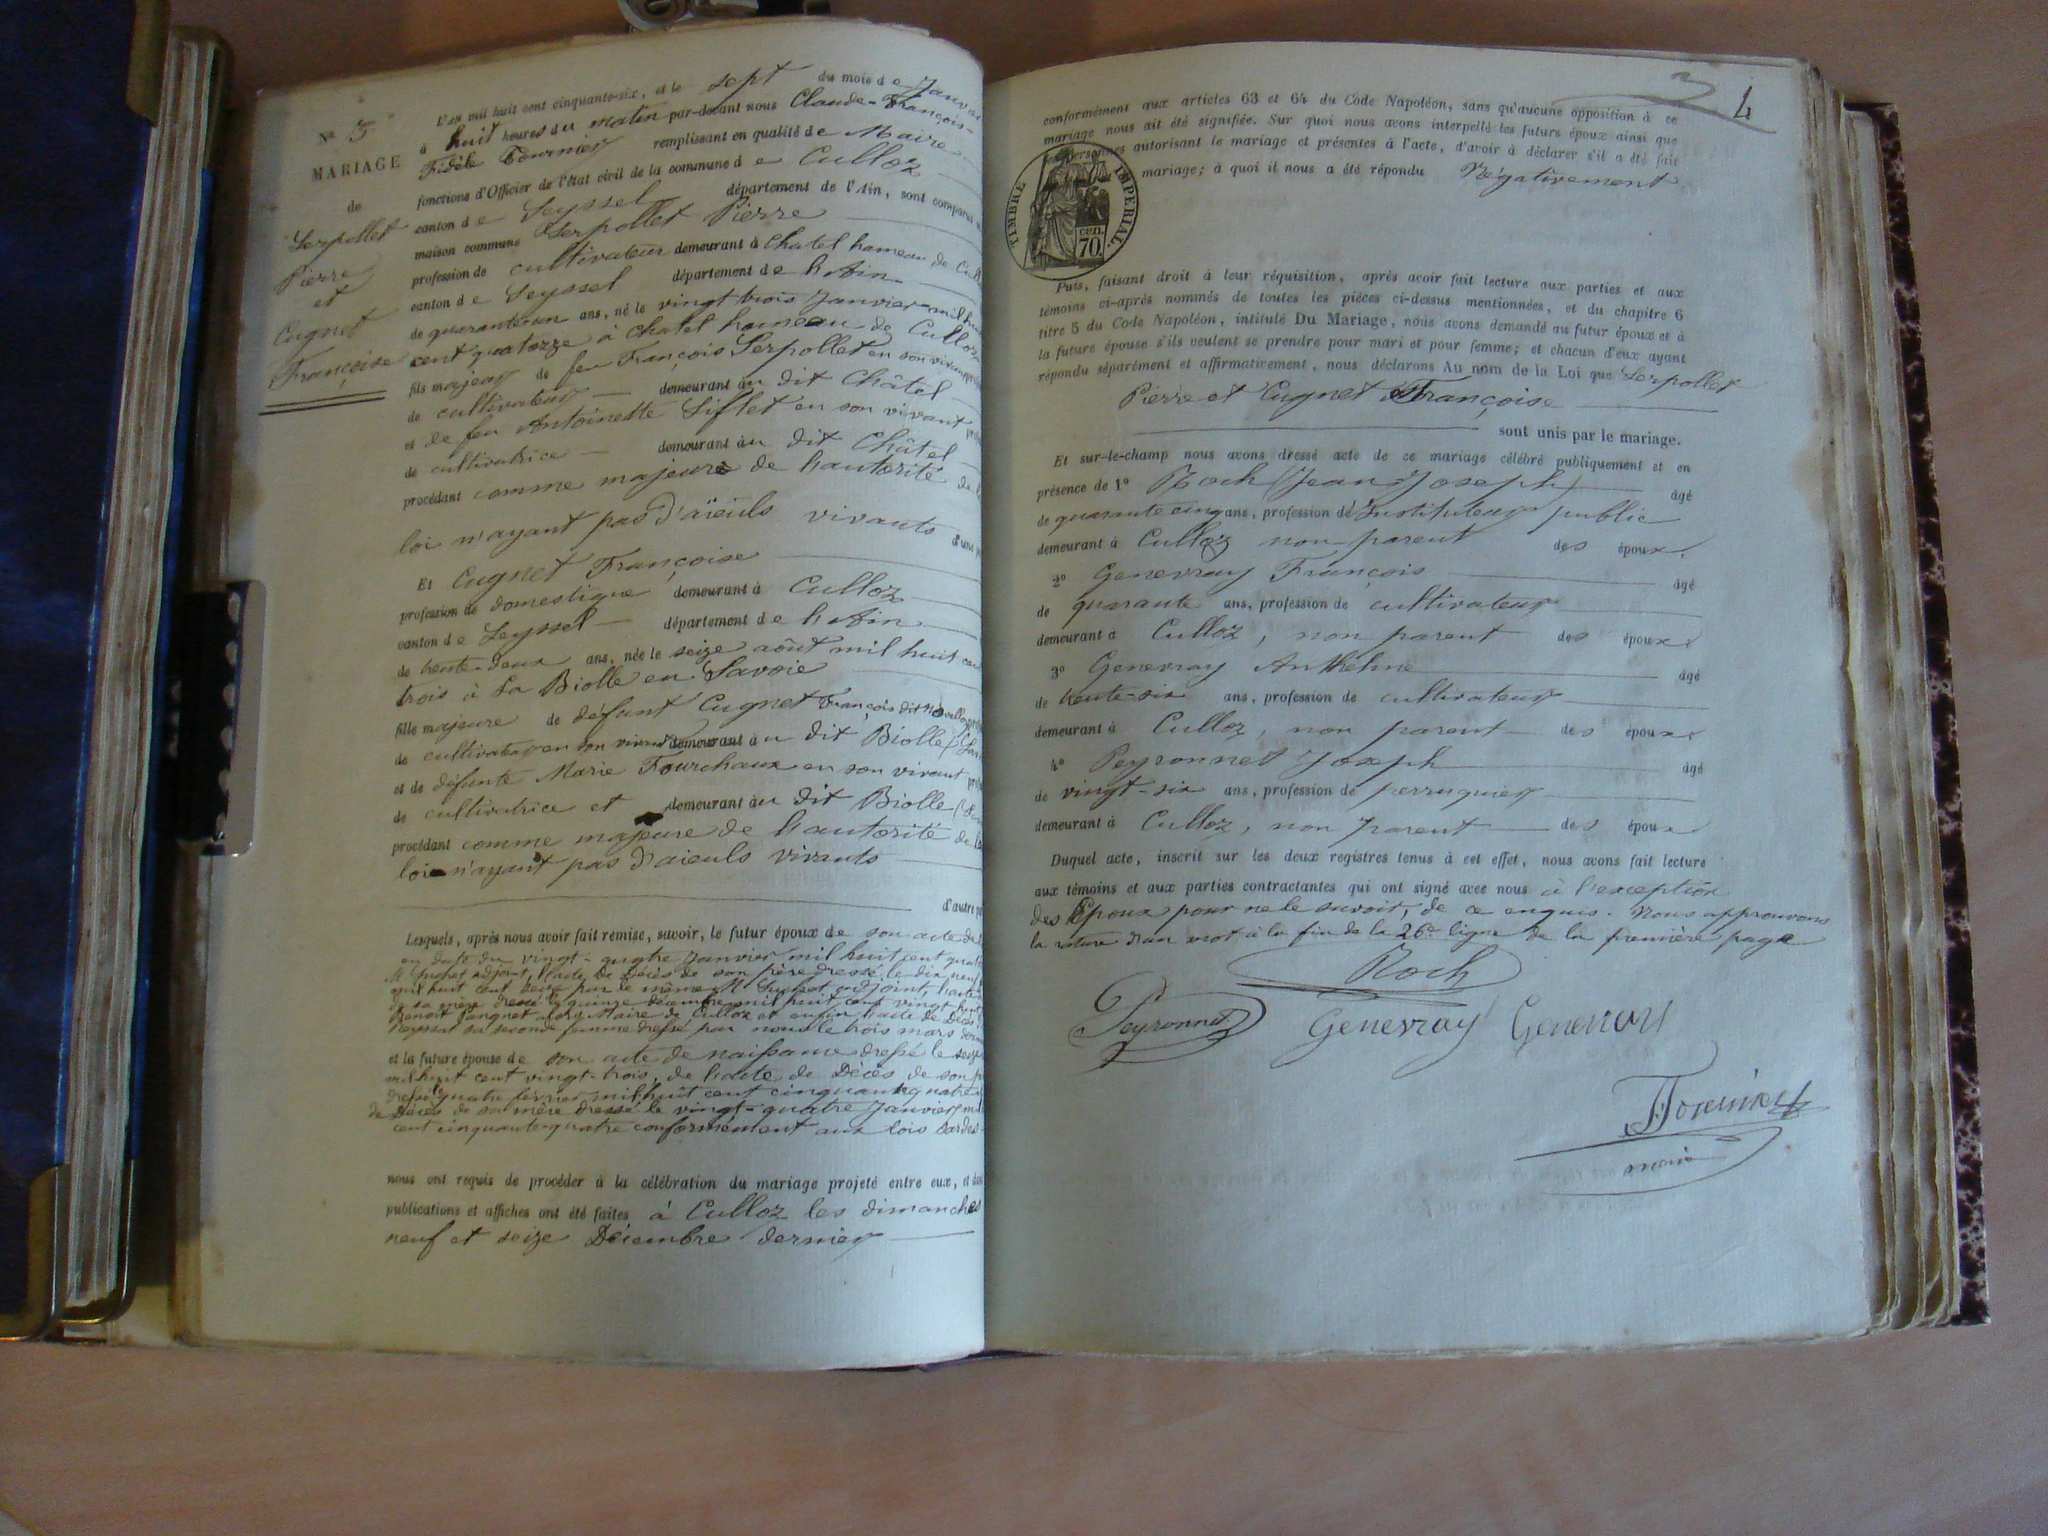 N° 3
MARIAGE
de
Serpollet
Pierre
et
Cugnet
Françoise
L'an mil huit cent cinquante-six, et le sept du mois de Janvier
à huit heures du matin par-devant nous Claude-François-
Fidèle Fournier remplissant en qualité de Maire
fonctions d'Officier de l'état civil de la commune de Culloz
canton de Seyssel département de l'Ain, sont comparus
maison commune Serpollet Pierre
profession de cultivateur demeurant à Chatel hameau de
canton de Seyssel département de l'Ain
de quarante un ans, né le vingt trois Janvier mil huit
cent quatorze à Chatel hameau de Culloz
fils majeur de feu François Serpollet en son vivant
de cultivateur demeurant au dit Châtel
et de feu Antoinette Siflet en son vivant
de cultivatrice demeurant au dit Châtel
procédant comme majeur de l'autorité de
loi n'ayant pas d'aïeuls vivants d'une
Et Cugnet Françoise
profession de domestique demeurant à Culloz
canton de Seyssel département de l'Ain
de trente-deux ans, née le seize août mil huit
trois à La Biolle en Savoie
fille majeure de défunt Cugnet François dit
de cultivateur en son vivant demeurant au dit Biolle
et de défunte Marie Fourchaux en son vivant
de cultivatrice et demeurant au dit Biolle
procédant comme majeure de l'autorité de la
loi n'ayant pas d'aïeuls vivants
d'autre
Lesquels, après nous avoir fait remise, savoir, le futur époux de son acte de
en date du vingt-quatre Janvier mil huit cent
adjoint, l'acte de décès de son père dressé le dix neuf
mil huit cent par le même adjoint, l'acte
de sa mère dressé le quinze décembre mil huit cent vingt
Benoit lors Maire de Culloz et enfin l'acte de Décès
sa seconde femme dressé par nous le trois mars
et la future épouse de son acte de naissance dressé le seize
mil huit cent vingt-trois, de l'acte de Décès de son
dressé quatre février mil huit cent cinquante quatre
de Décès de sa mère dressé le vingt-quatre Janvier
cent cinquante-quatre conformément aux lois Sardes
nous ont requis de procéder à la célébration du mariage projeté entre eux, et
publications et affiches ont été faites à Culloz les dimanches
neuf et seize Décembre dernier
3 4
conformément aux articles 63 et 64 du Code Napoléon, sans qu'aucune opposition à ce
mariage nous ait été signifiée. Sur quoi nous avons interpellé les futurs époux ainsi que
personnes autorisant le mariage et présentes à l'acte, d'avoir à déclarer s'il a été fait
mariage; à quoi il nous a été répondu Négativement
TIMBRE IMPERIAL.
CEN.
70.
Puis, faisant droit à leur réquisition, après avoir fait lecture aux parties et aux
témoins ci-après nommés de toutes les pièces ci-dessus mentionnées, et du chapitre 6
titre 5 du Code Napoléon, intitulé Du Mariage, nous avons demandé au futur époux et à
la future épouse s'ils veulent se prendre pour mari et pour femme; et chacun d'eux ayant
répondu séparément et affirmativement, nous déclarons Au nom de la Loi que Serpollet
Pierre et Cugnet Françoise
sont unis par le mariage.
Et sur-le-champ nous avons dressé acte de ce mariage célébré publiquement et en
présence de 1° Roch (Jean Joseph) âgé
de quarante cinq ans, profession d'Instituteur public
demeurant à Culloz non parent des époux.
2° Genevray François âgé
de quarante ans, profession de cultivateur
demeurant à Culloz, non parent des époux
3° Genevray Anthelme âgé
de trente-six ans, profession de cultivateur
demeurant à Culloz, non parent des époux
4° Peyronnet Joseph âgé
de vingt-six ans, profession de perruquier
demeurant à Culloz, non parent des époux
Duquel acte, inscrit sur les deux registres tenus à cet effet, nous avons fait lecture
aux témoins et aux parties contractantes qui ont signé avec nous à l'exception
des Epoux pour ne le savoir, de ce enquis. Nous approuvons
la rature d'un mot à la fin de la 26e ligne de la première page
Roch
Peyronnet Genevray Genevray
F. Fournier
maire